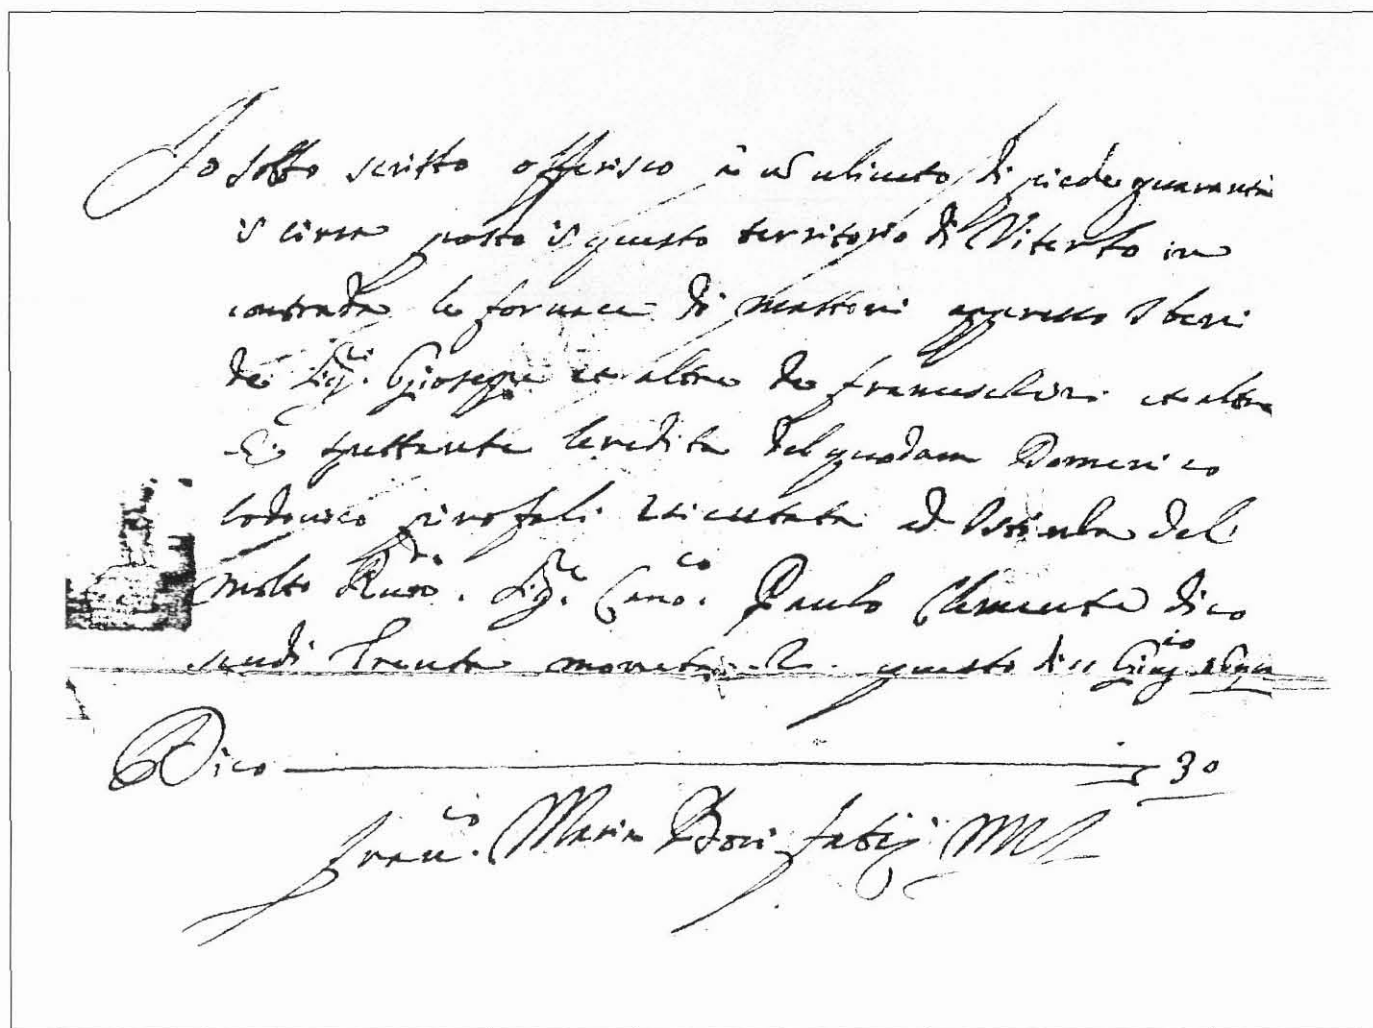 Io sotto scritto offerisco à un uliveto di piede quaranta
in circa posto in questo territorio di Viterbo in
contrada le fornace di mattoni appresso I beni
de Sigri. Gioseppe et altre de franceschini et altre
spettante leredita del quodam Domenico
lodovico ad Istanba del
molto Rndo. Sigre. Canco. Paulo Clemente dico
scudi Trenta moneta questo di 11 Giugio
Dico 30
Franco. Maria Bonifatij